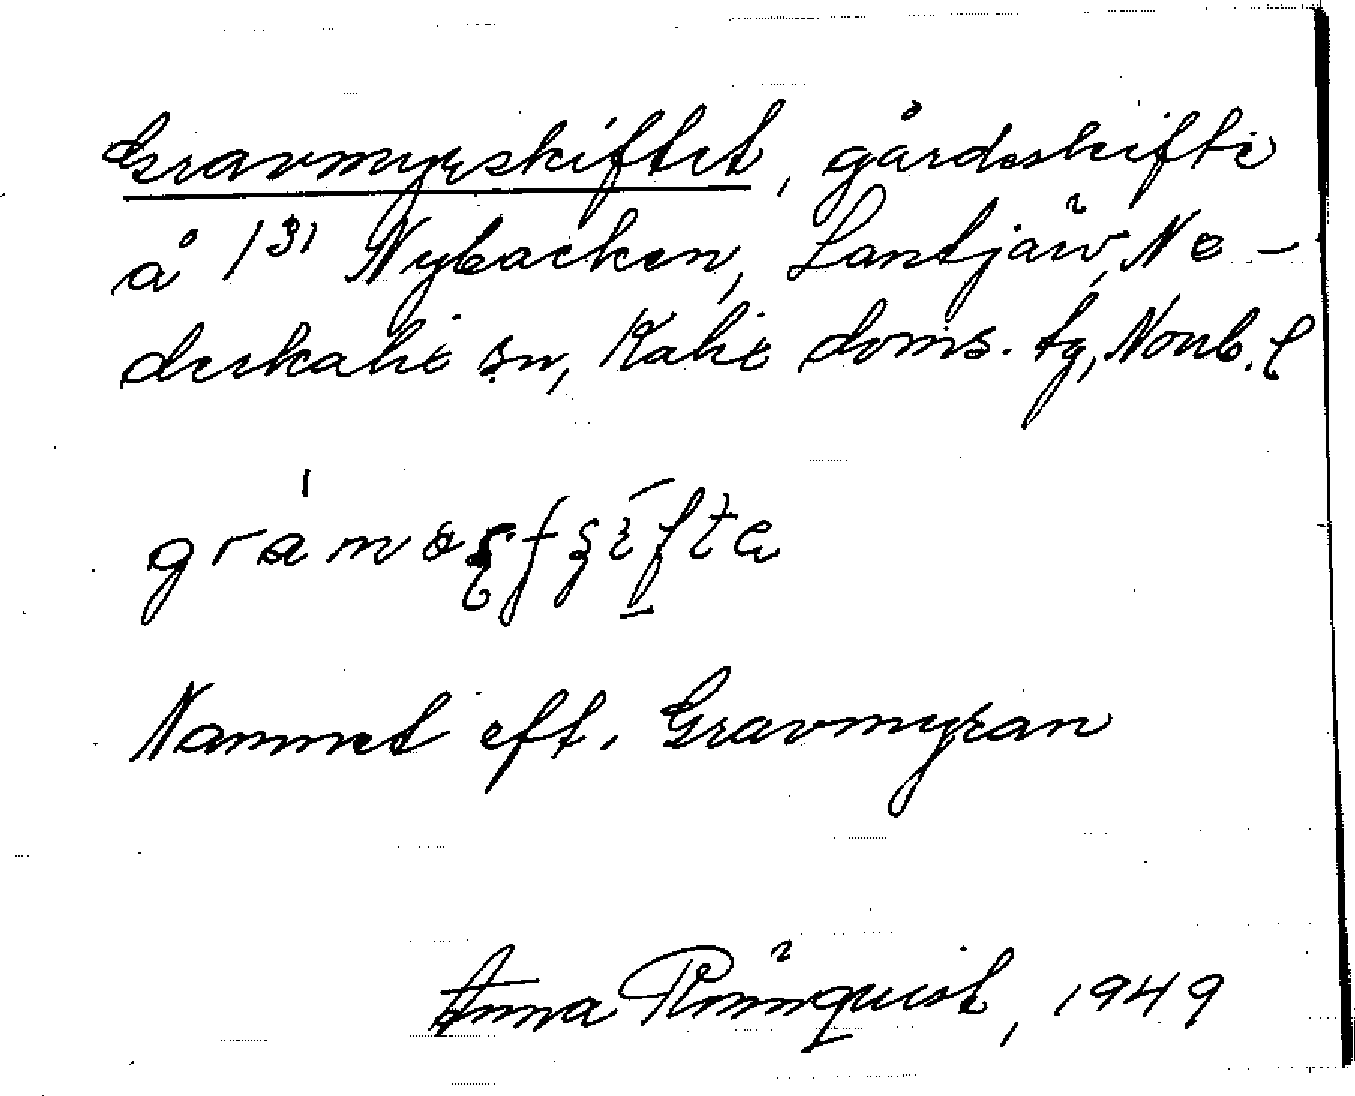 Gravmyrskiftet, gårdsskifte
å 1³¹ Nybacken, Lantjärv, Ne-
derkalix sn, Kalix doms. tg, Norrb. l
Namnet eft. Gravmyran
Anna Rönnquist, 1949